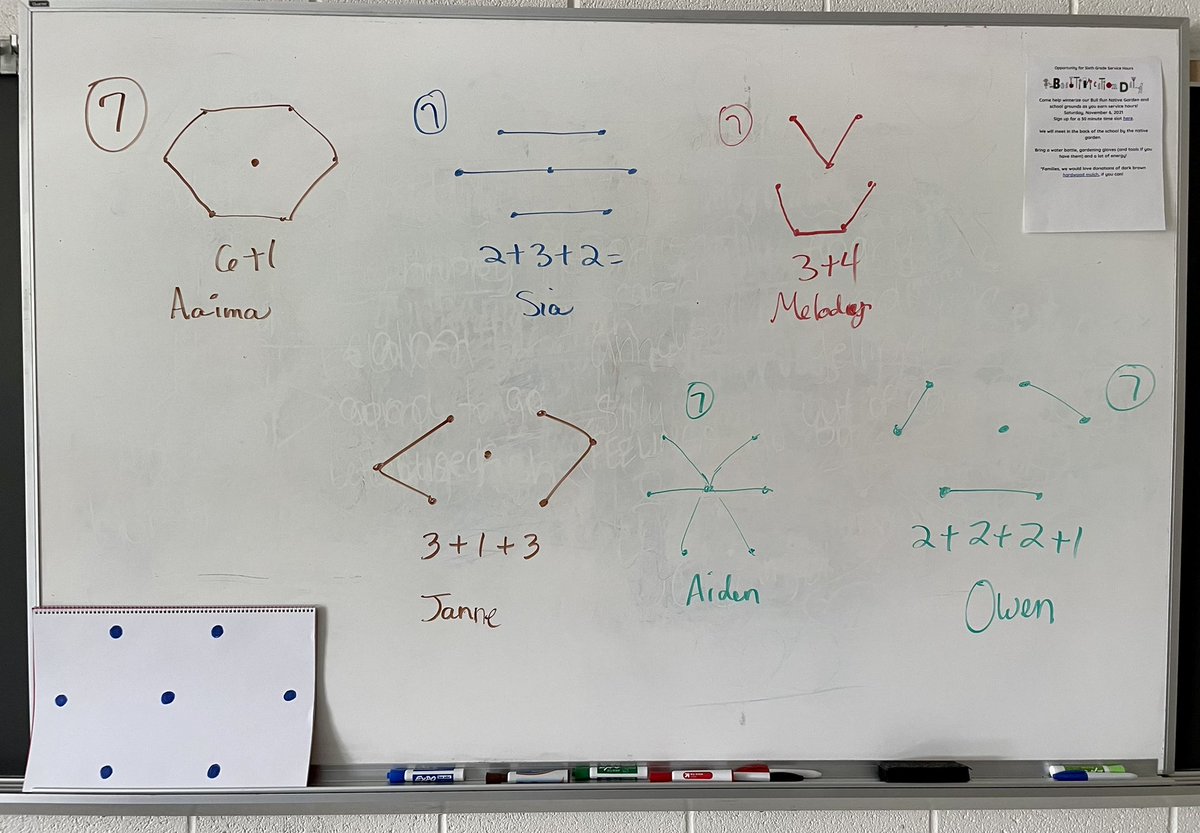 7
6+1
Aaima
7
2+3+2=
Sia
7
3+4
Melody
Opportunity for Sixth Grade Service Hours
Come help winterize our Bull Run Native Garden and
school grounds as you earn service hours!
Saturday, November 6, 2021
Sign up for a 30 minute time slot here.
We will meet in the back of the school by the native
garden.
Bring a water bottle, gardening gloves (and tools if you
have them) and a lot of energy!
*Families, we would love donations of dark brown
hardwood mulch, if you can!
3+1+3
Janne
7
Aiden
7
2+2+2+1
Owen